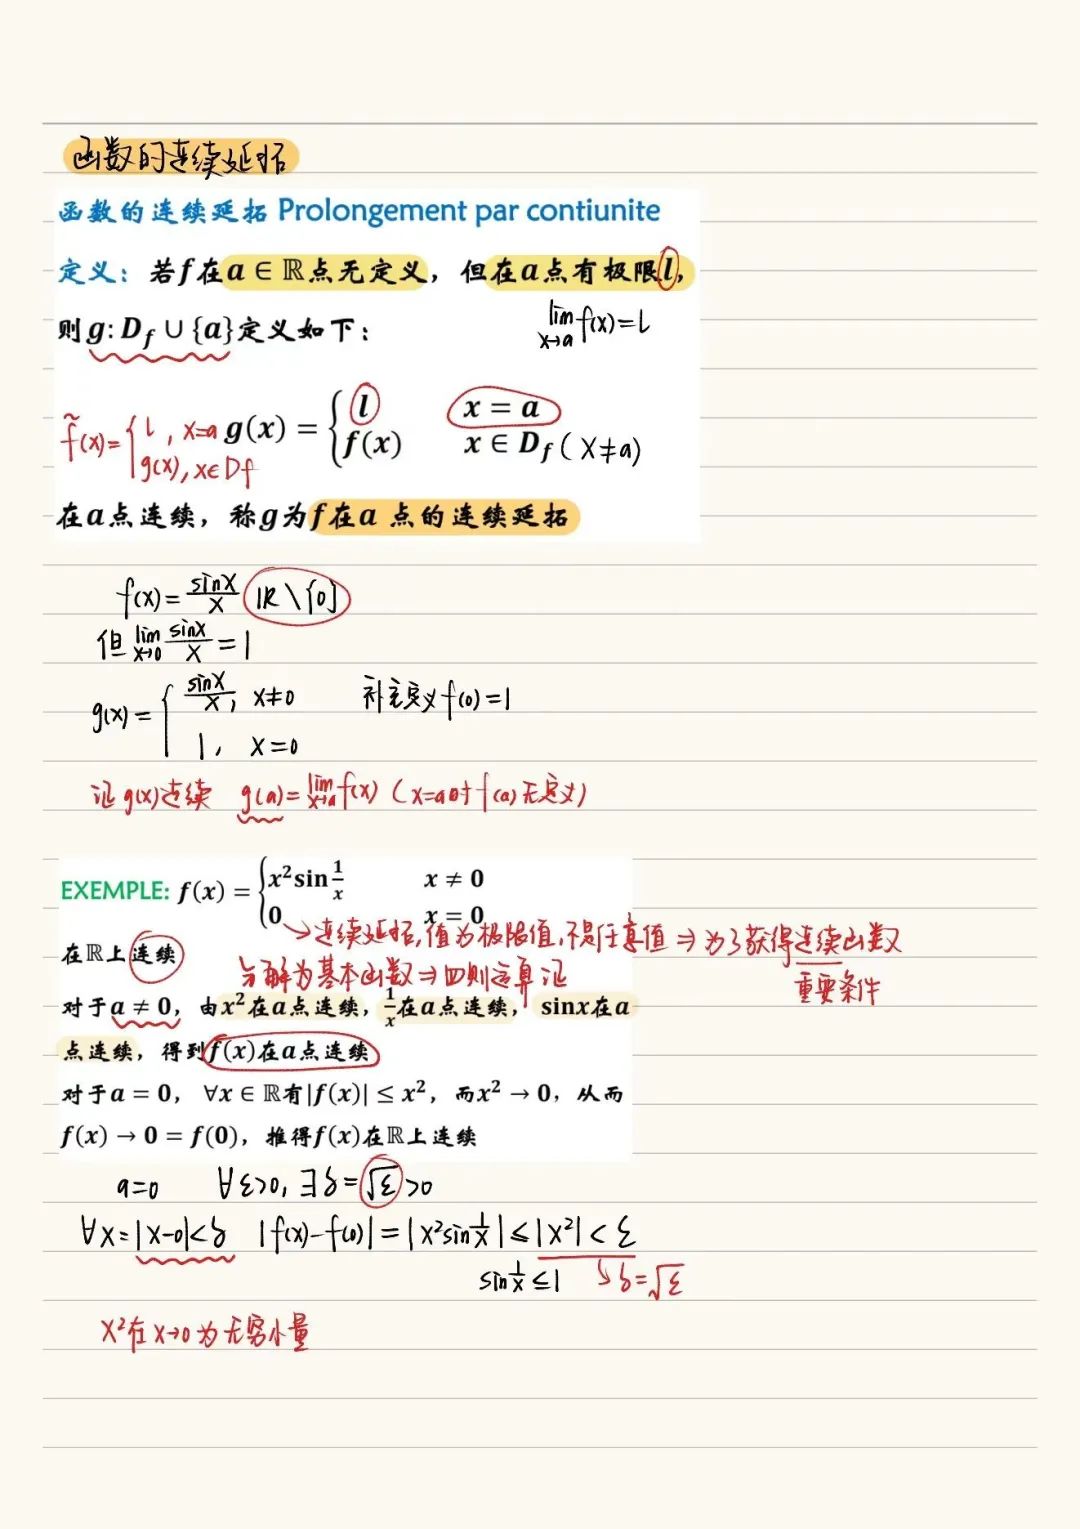 函数的连续延拓
函数的连续延拓 Prolongement par contiunite
定义：若f在a∈ℝ点无定义，但在a点有极限l，
则g: D_f ∪ {a}定义如下： lim_{x→a} f(x)=l
f̃(x)={ l, x=a g(x) = { l x = a
g(x), x∈Df f(x) x ∈ D_f (x≠a)
在a点连续，称g为f在a 点的连续延拓
f(x)= sinx/x ℝ\{0}
但 lim_{x→0} sinx/x = 1
g(x) = { sinx/x, x≠0 补充定义f(0)=1
1, x=0
证g(x)连续 g(a)= lim_{x→a} f(x) (x=a时f(a)无定义)
EXEMPLE: f(x) = { x² sin 1/x x ≠ 0
0 x = 0
→连续延拓,值为极限值,不是任意值⇒为了获得连续函数
在ℝ上连续
分解为基本函数⇒四则运算证 重要条件
对于a ≠ 0，由x²在a点连续，1/x在a点连续，sinx在a
点连续，得到f(x)在a点连续
对于a = 0，∀x ∈ ℝ有|f(x)| ≤ x²，而x² → 0，从而
f(x) → 0 = f(0)，推得f(x)在ℝ上连续
a=0 ∀ε>0, ∃δ=√ε>0
∀x=|x-0|<δ |f(x)-f(0)|=|x²sin 1/x|≤|x²|<ε
sin 1/x ≤1 ↳δ=√ε
x²在x→0为无穷小量